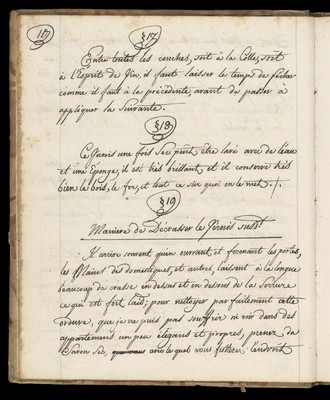 16)
§17
Entre toutes les couches, soit à la Colle, soit
à l'Esprit de Vin, il faut laisser le temps de sécher
comme il faut à la précédente, avant de passer à
appliquer la Suivante.
§18
Ce Vernis une fois Sec peut être lavé avec de l'eau
et une Eponge, il est très brillant, et il conserve très
bien le bois, le fer, et tout ce sur quoi on le met ./.
§19
Maniere de Décrasser le Vernis susdt
Il arrive souvent qu'en ouvrant et fermant les portes,
les Mains des domestiques, et autres, laissent à la longue
beaucoup de crasse en dessus et en dessous de la Serrure
ce qui est fort laid; pour nettoyer parfaitement cette
ordure, que je ne puis pas souffrir ni voir dans des
appartements un peu élégants et propres, prenez du
Savon Sec, avec lequel vous frotterez l'endroit